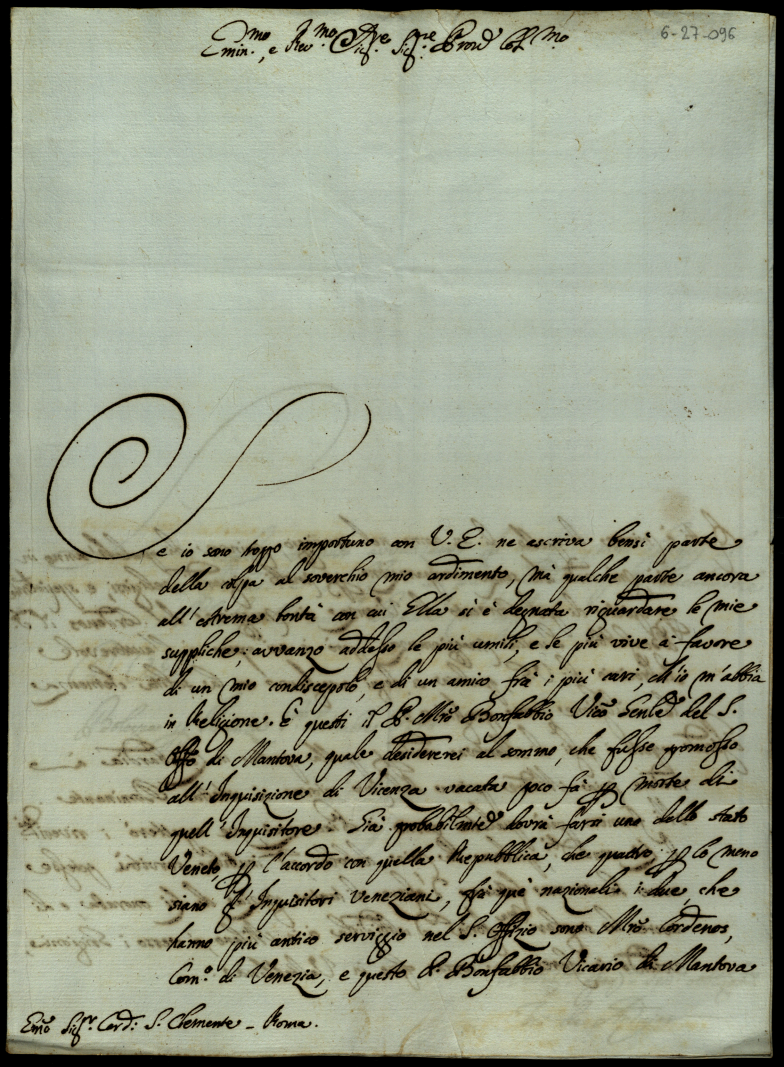 6-27-096
Emin.mo, e Rev.mo Sig.re Sig.re Prone Col.mo
Se io sono troppo importuno con V. E. ne ascriva bensì parte
della colpa al soverchio mio ardimento, mà qualche parte ancora
all'estrema bontà con cui Ella si è degnata riguardare le mie
suppliche: avvanzo addesso le più umili, e le più vive à favore
di un mio condiscepolo, e di un amico frà i più cari, ch'io m'abbia
in Religione. È questi il P. Mro Bonfabbio Vico Genle del S.
Offo di Mantova, quale desidererei al sommo, che fusse promosso
all'Inquisizione di Vicenza vacata poco fà p morte di
quell'Inquisitore. Già probabilmte dovrà farsi uno dello stato
Veneto, p l'accordo con quella Repubblica, che quattro, p lo meno
siano gl'Inquisitori Veneziani, frà què nazionali i due, che
hanno più antico serviggio nel S. Offizio sono Mro Cordenos,
Com.o di Venezia, e questo P. Bonfabbio Vicario di Mantova
Emo Sig.r Card: S. Clemente - Roma.